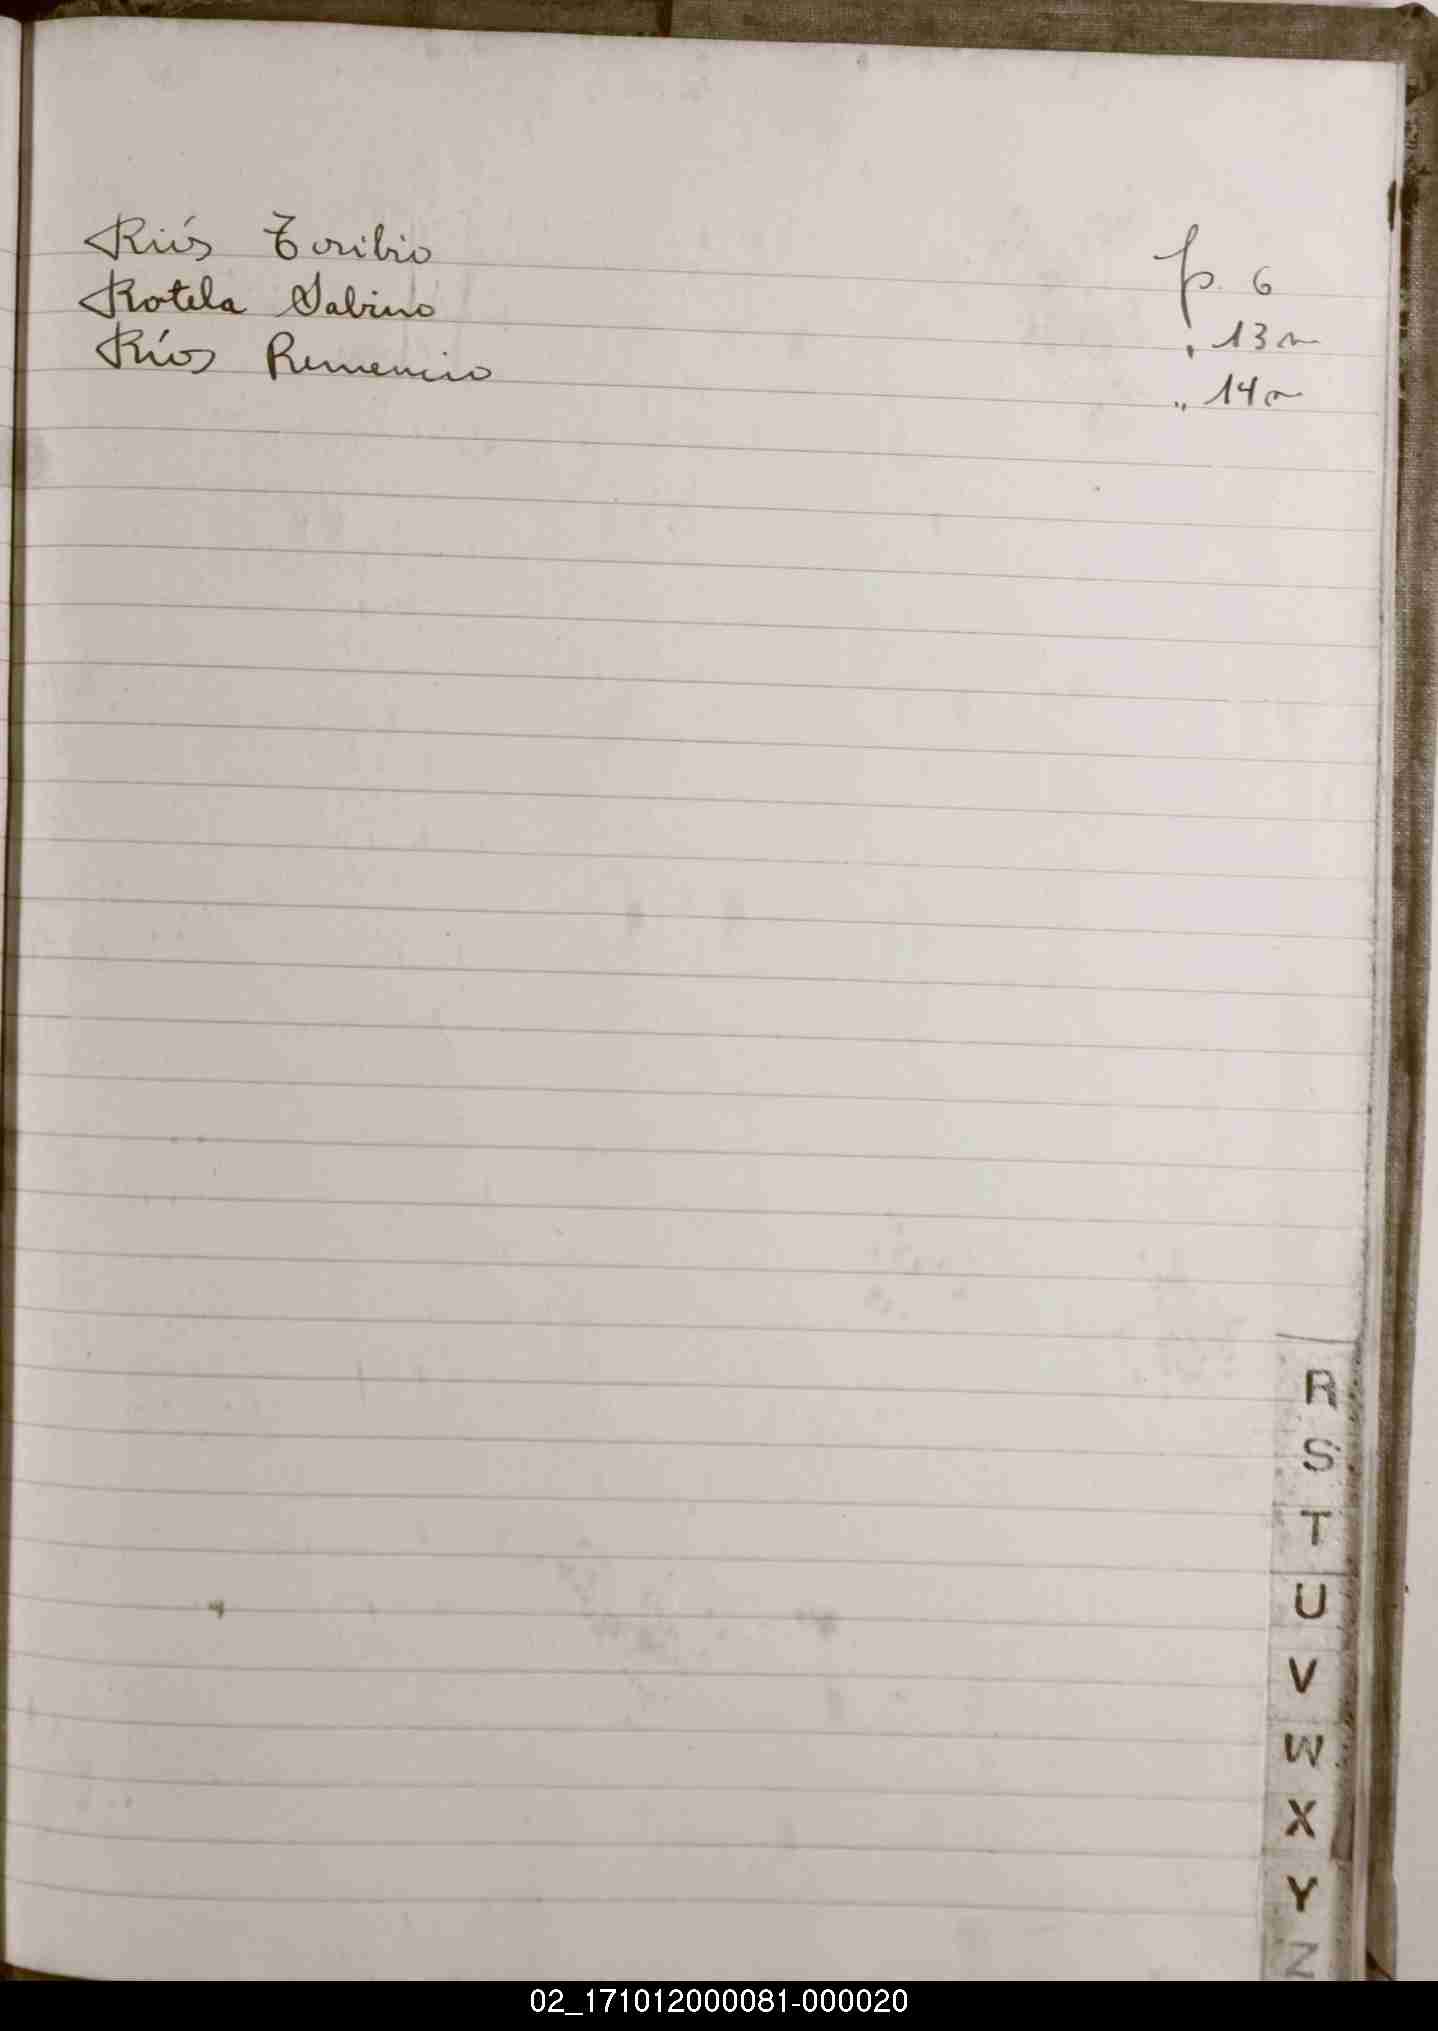 Ríos Toribio p. 6
Rotela Sabino " 13
Ríos " 14
R
S
T
U
V
W
X
Y
Z
02_171012000081-000020